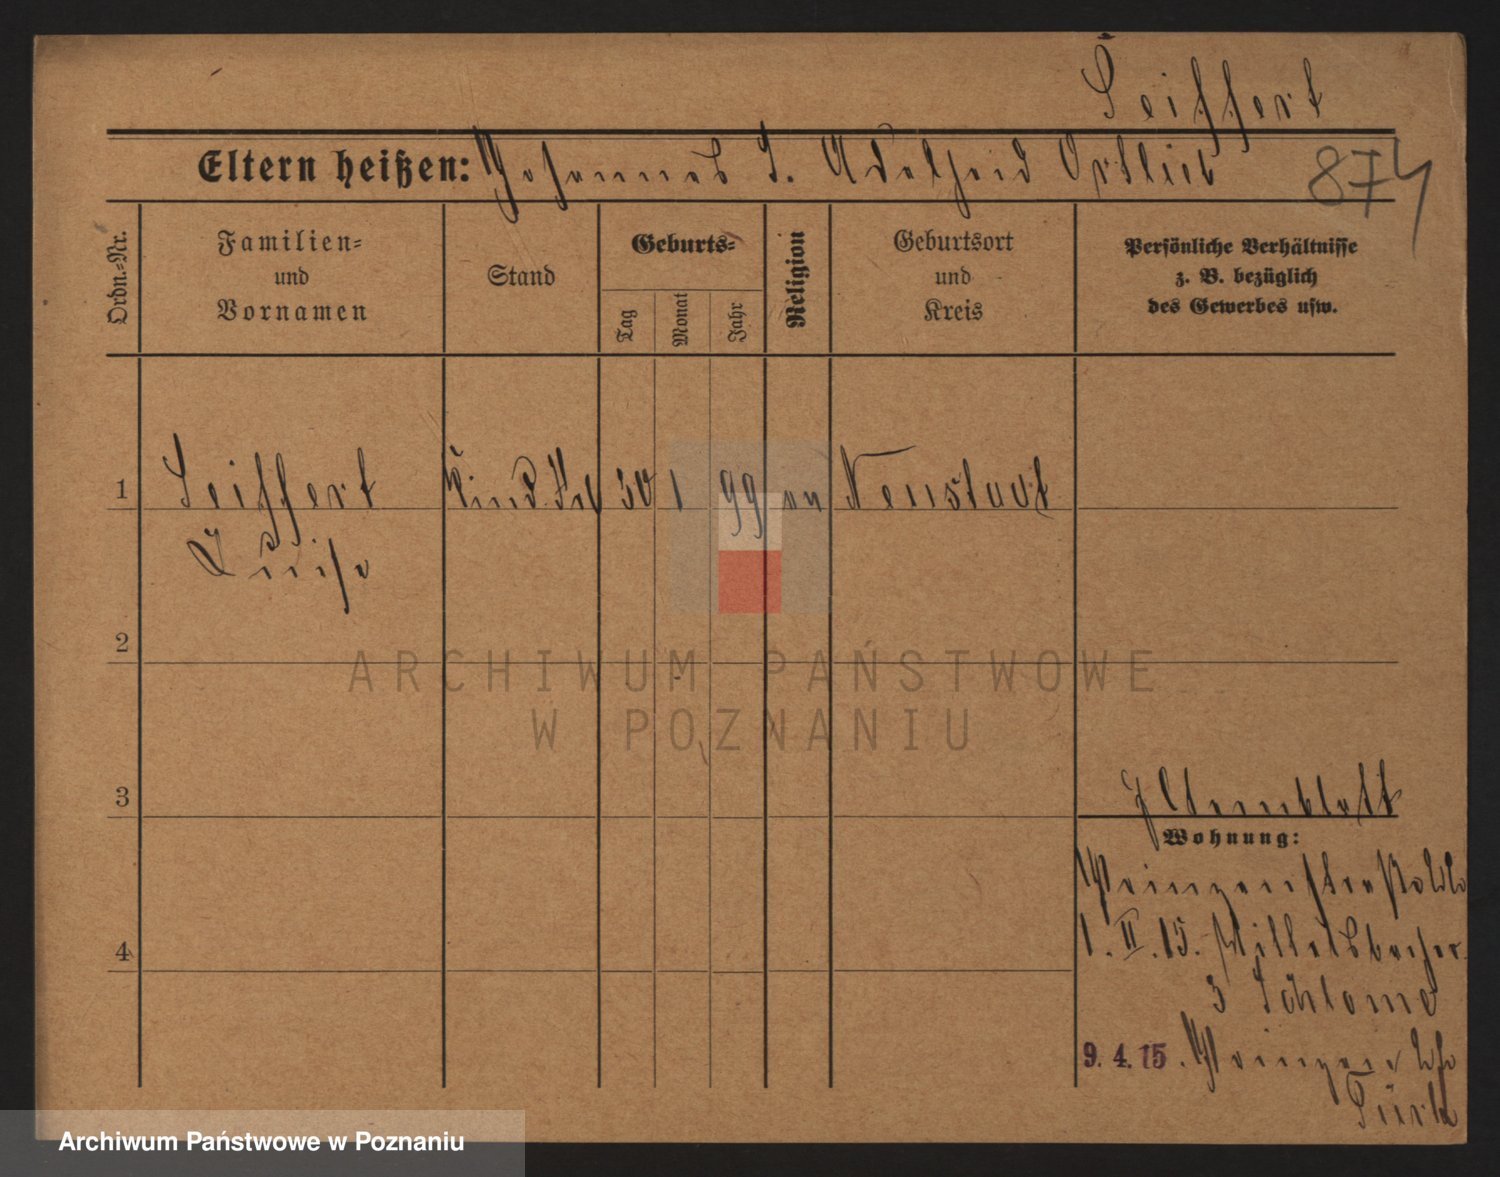 Seiffert
Eltern heißen: Johannes u. Adelheid Ortlieb
874
Ordn.=Nr.
Familien=
und
Vornamen
Stand
Geburts=
Tag
Monat
Jahr
Religion
Geburtsort
und
Kreis
Persönliche Verhältnisse
z. B. bezüglich
des Gewerbes usw.
1 Seiffert Kind. Frl 30 1 99 ev Neustadt
Luise
2
3
4
Wohnung:
Prinzenstr
1. II. 15.
3
9. 4. 15. Prinzen
ARCHIWUM PAŃSTWOWE
W POZNANIU
Archiwum Państwowe w Poznaniu